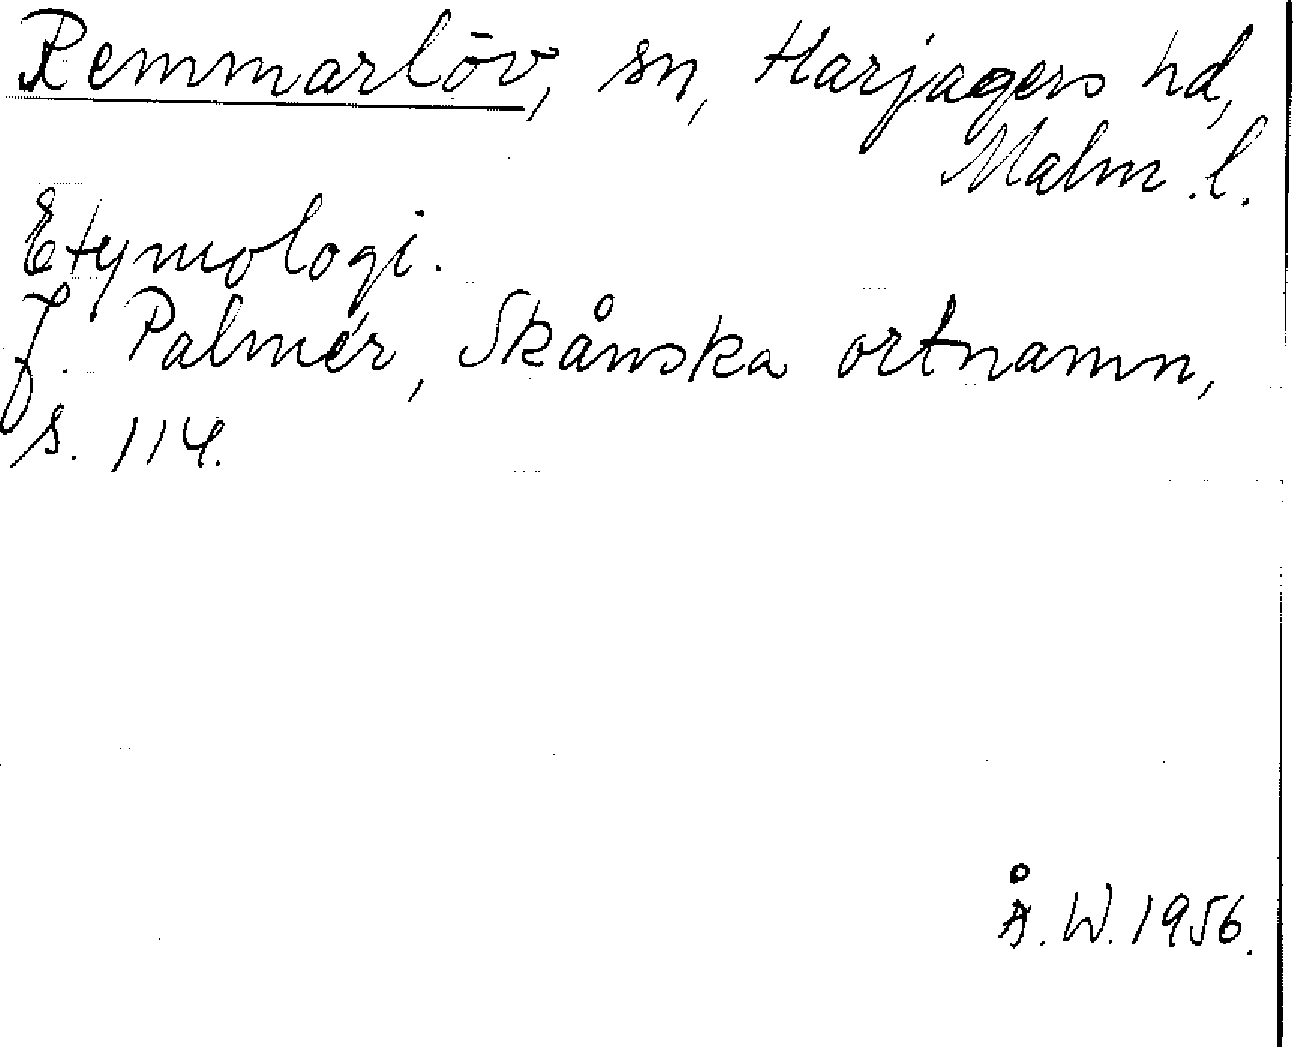 Remmarlöv, sn, Harjagers hd,
Malm. l.
Etymologi.
J. Palmér, Skånska ortnamn,
s. 114.
Å.W. 1956.